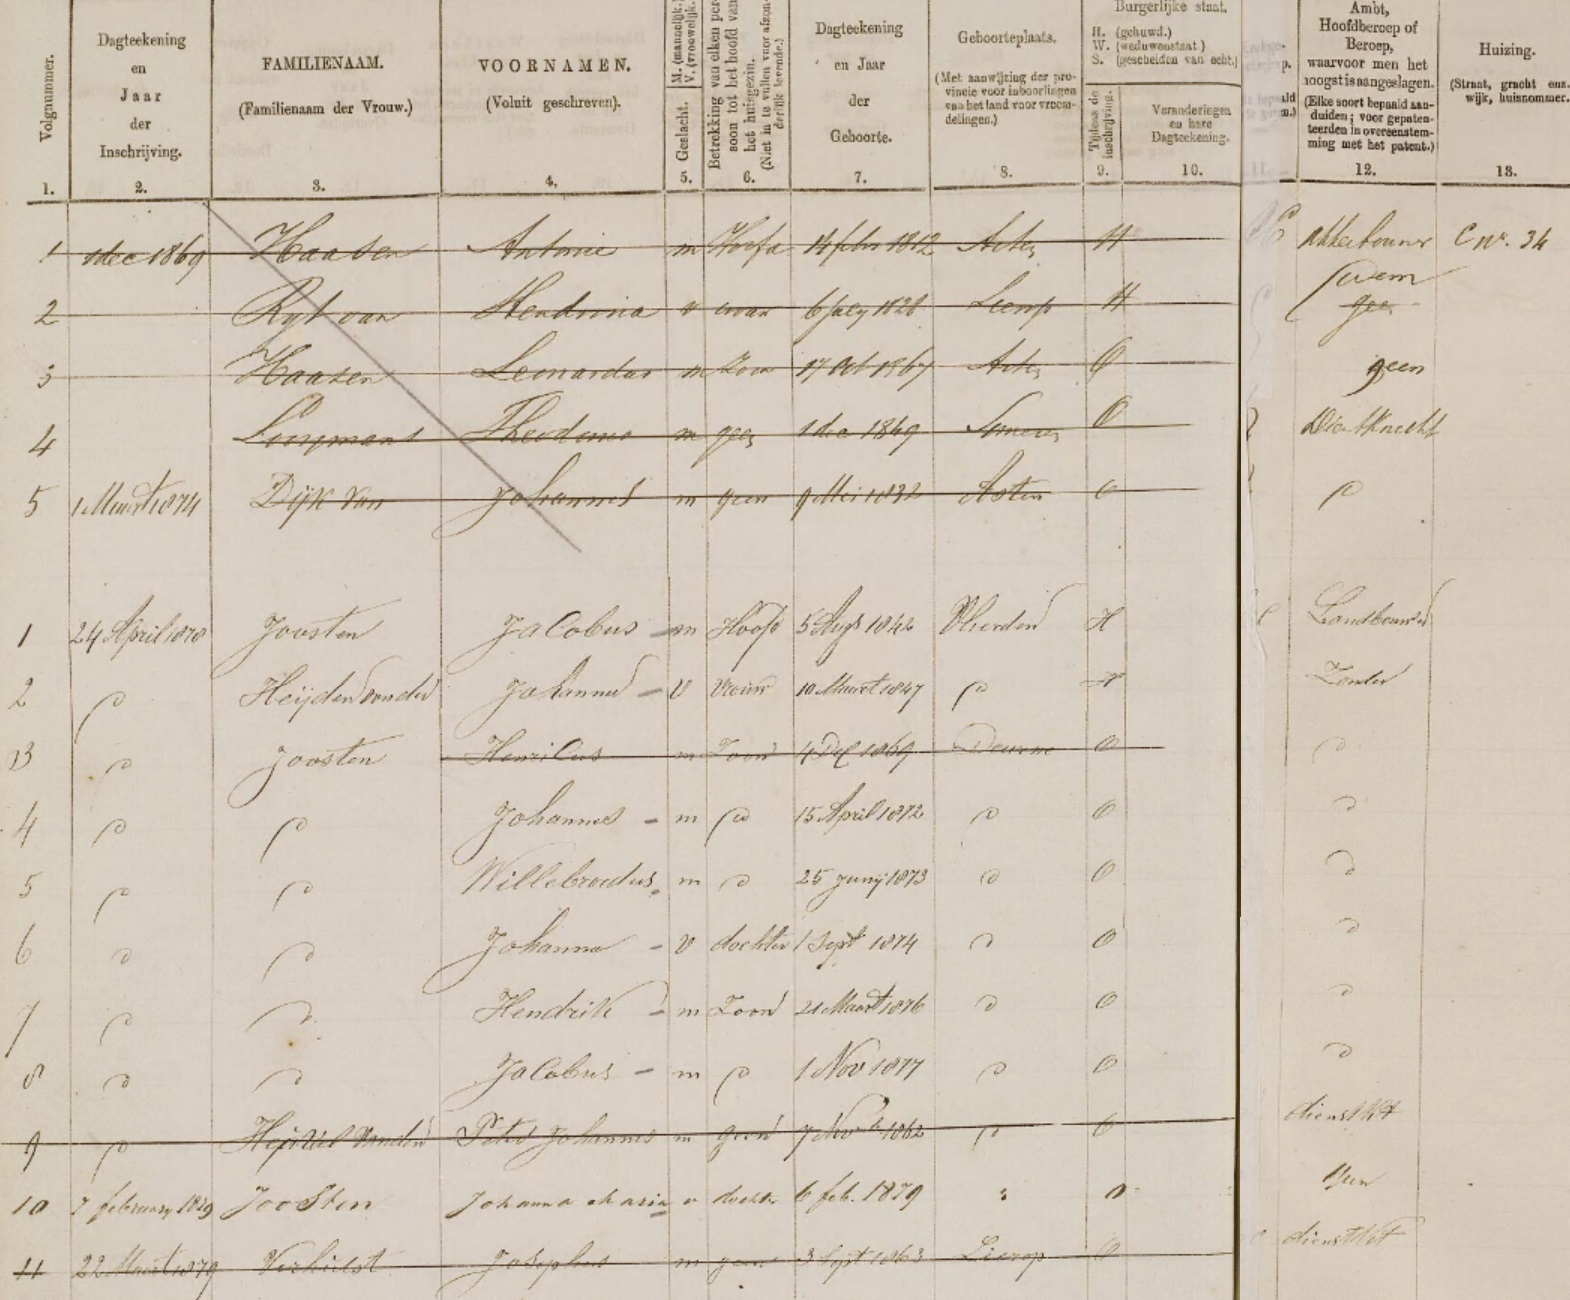 Volgnummer.
1.
Dagteekening
en
Jaar
der
Inschrijving.
2.
FAMILIENAAM.
(Familienaam der Vrouw.)
3.
VOORNAMEN.
(Voluit geschreven).
4.
Geslacht.
M. (mannelijk.)
V. (vrouwelijk.)
5.
Betrekking van elken per-
soon tot het hoofd van
het huisgezin.
(Niet in te vullen voor afzon-
derlijk levende.)
6.
Dagteekening
en Jaar
der
Geboorte.
7.
Geboorteplaats.
(Met aanwijzing der pro-
vincie voor inboorlingen
van het land voor vreem-
delingen.)
8.
Burgerlijke staat.
H. (gehuwd.)
W. (weduwenstaat.)
S. (gescheiden van echt.)
Tijdens de
inschrijving.
9.
Veranderingen
en hare
Dagteekening.
10.
11.
Ambt,
Hoofdberoep of
Beroep,
waarvoor men het
hoogst is aangeslagen.
(Elke soort bepaald aan-
duiden; voor gepaten-
teerden in overeenstem-
ming met het patent.)
12.
Huizing.
(Straat, gracht enz.
wijk, huisnommer.
13.
1 1 dec 1869 Haasen Antonie m 14 febr 1812 H akkerbouwer C nr. 34
2 Ryt van Hendrina v 6 July 1828 H geen
3 Haasen Leonardus m Zoon 17 Oct 1867 O geen
4 m 1 dec 1869 Someren O
5 1 Maart 1874 Dijk van Johannes m geen 9 Mei 1832 Asten O
1 24 April 1878 Joosten Jacobus m Hoofd 5 Augs 1842 Vlierden H Landbouwer
2 " Heijden vander Johanna V Vrouw 10 Maart 1847 " H Zonder
3 " Joosten Henricus m Zoon 4 Dec 1869 Deurne O "
4 " " Johannes m " 15 April 1872 " O "
5 " " Willebrordus m " 25 Junij 1873 " O "
6 " " Johanna v dochter 1 Sept 1874 " O "
7 " " Hendrik m Zoon 21 Maart 1876 " O "
8 " " Jacobus m " 1 Nov 1877 " O "
9 " Peter Johannes m geen 7 Nov 1862 " O dienstkt
10 7 february 1879 Joosten Johanna Maria v dochter 6 feb. 1879 " O geen
11 22 Maart 1879 Verhulst Josephus m geen 3 Sept 1863 Lierop O